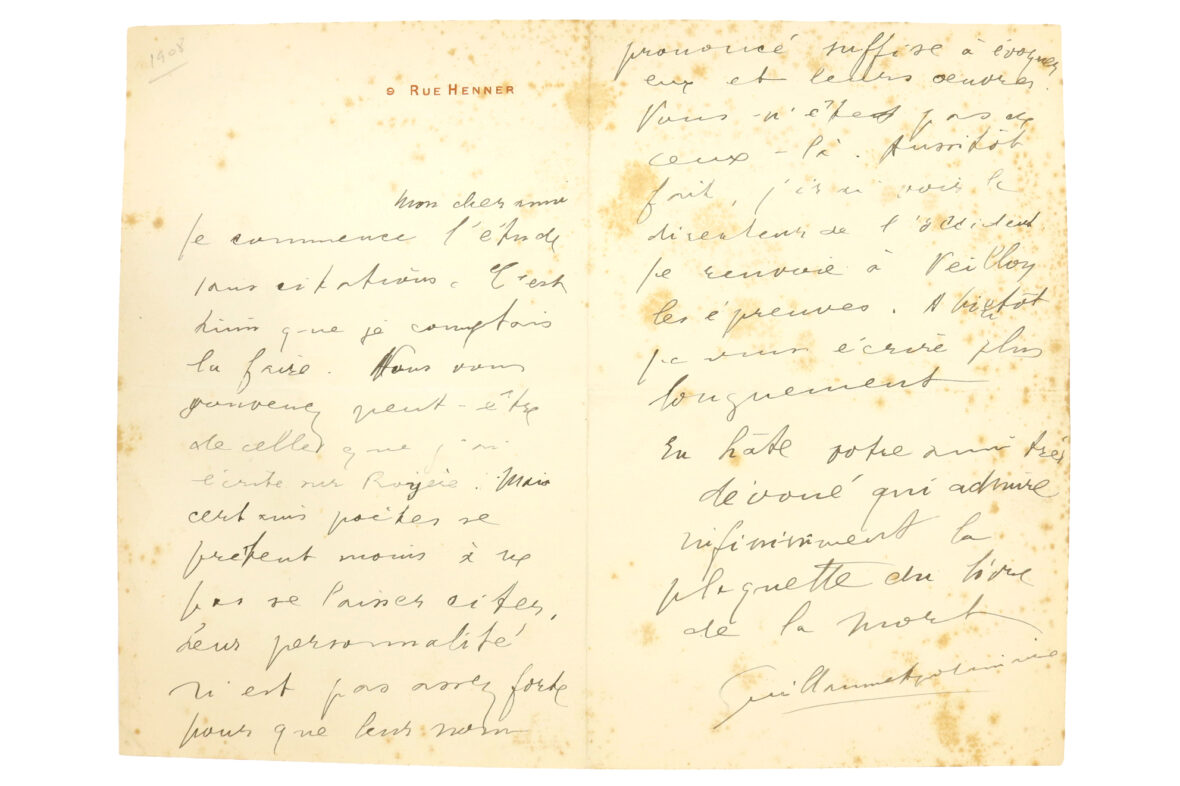 1908
9 RUE HENNER
Mon cher ami
Je commence l'étude
sans citations. C'est
ainsi que je comptais
la faire. Vous vous
souvenez peut-être
de celle que j'ai
écrite sur Royère. Mais
certains poètes se
prêtent moins à ne
pas se laisser citer,
leur personnalité
n'est pas assez forte
pour que leur nom
prononcé suffise à évoquer
eux et leurs œuvres.
Vous n'êtes pas de
ceux-là. Aussitôt
fait, j'irai voir le
directeur de l'Occident
Je renvoie à
les épreuves. A bientôt
je vous écrirai plus
longuement
En hâte votre ami très
dévoué qui admire
infiniment la
plaquette du livre
de la Mort
Guillaume Apollinaire